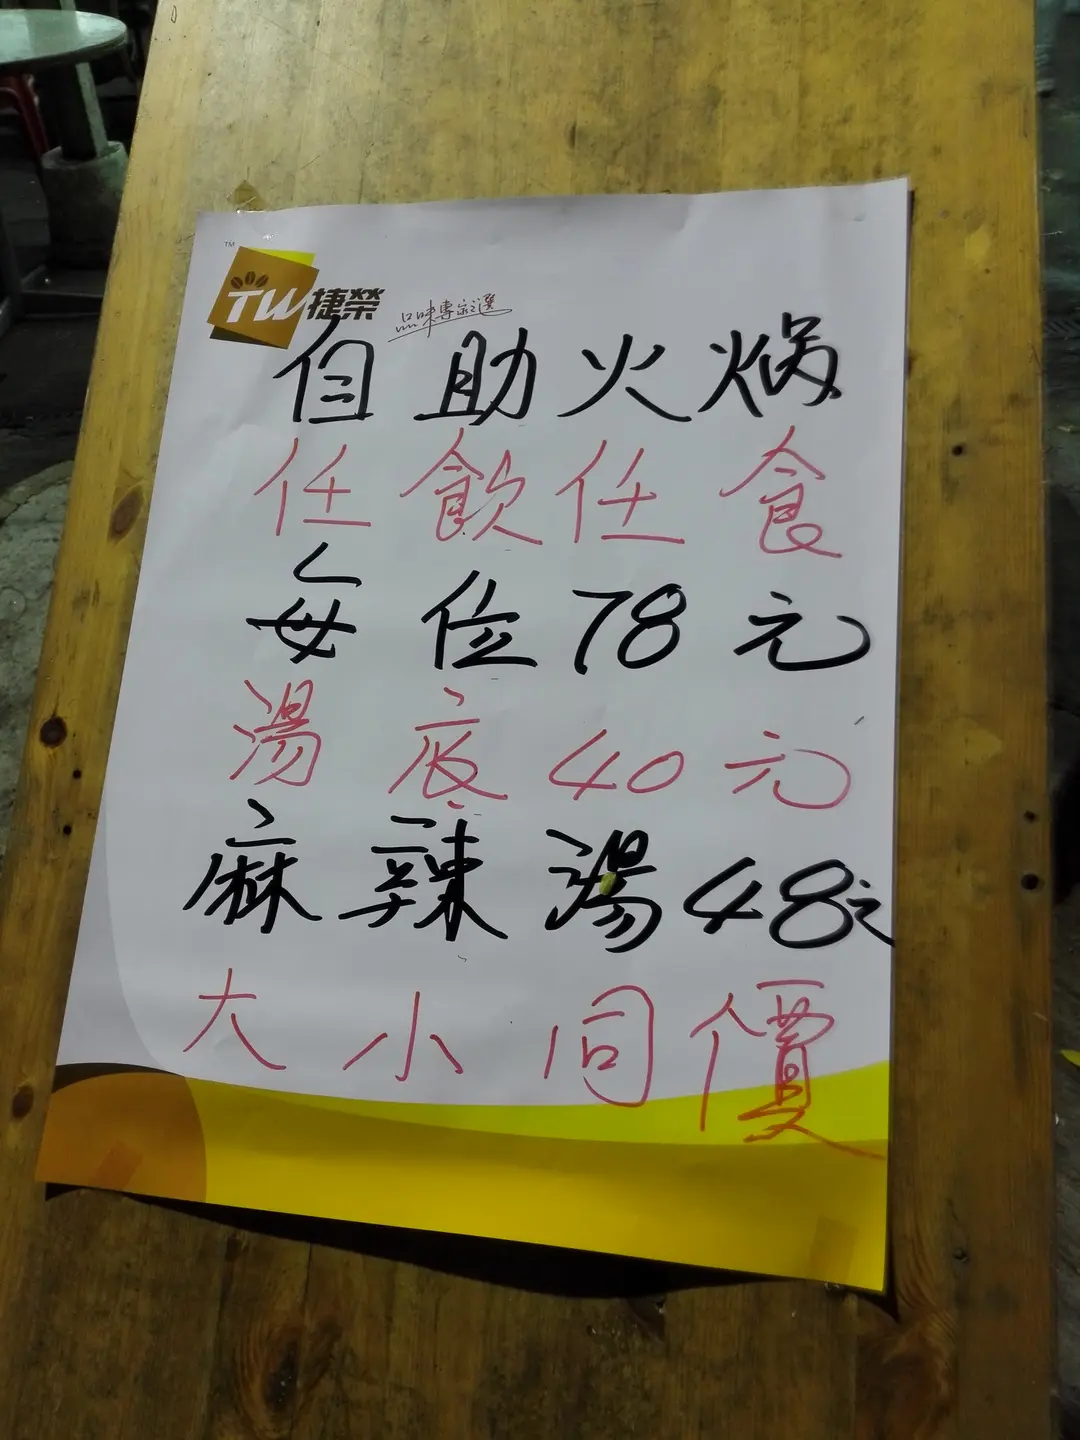 TM
TW捷榮 品味專家之選
自助火煱
任飲任食
每位78元
湯底40元
麻辣湯48元
大小同價